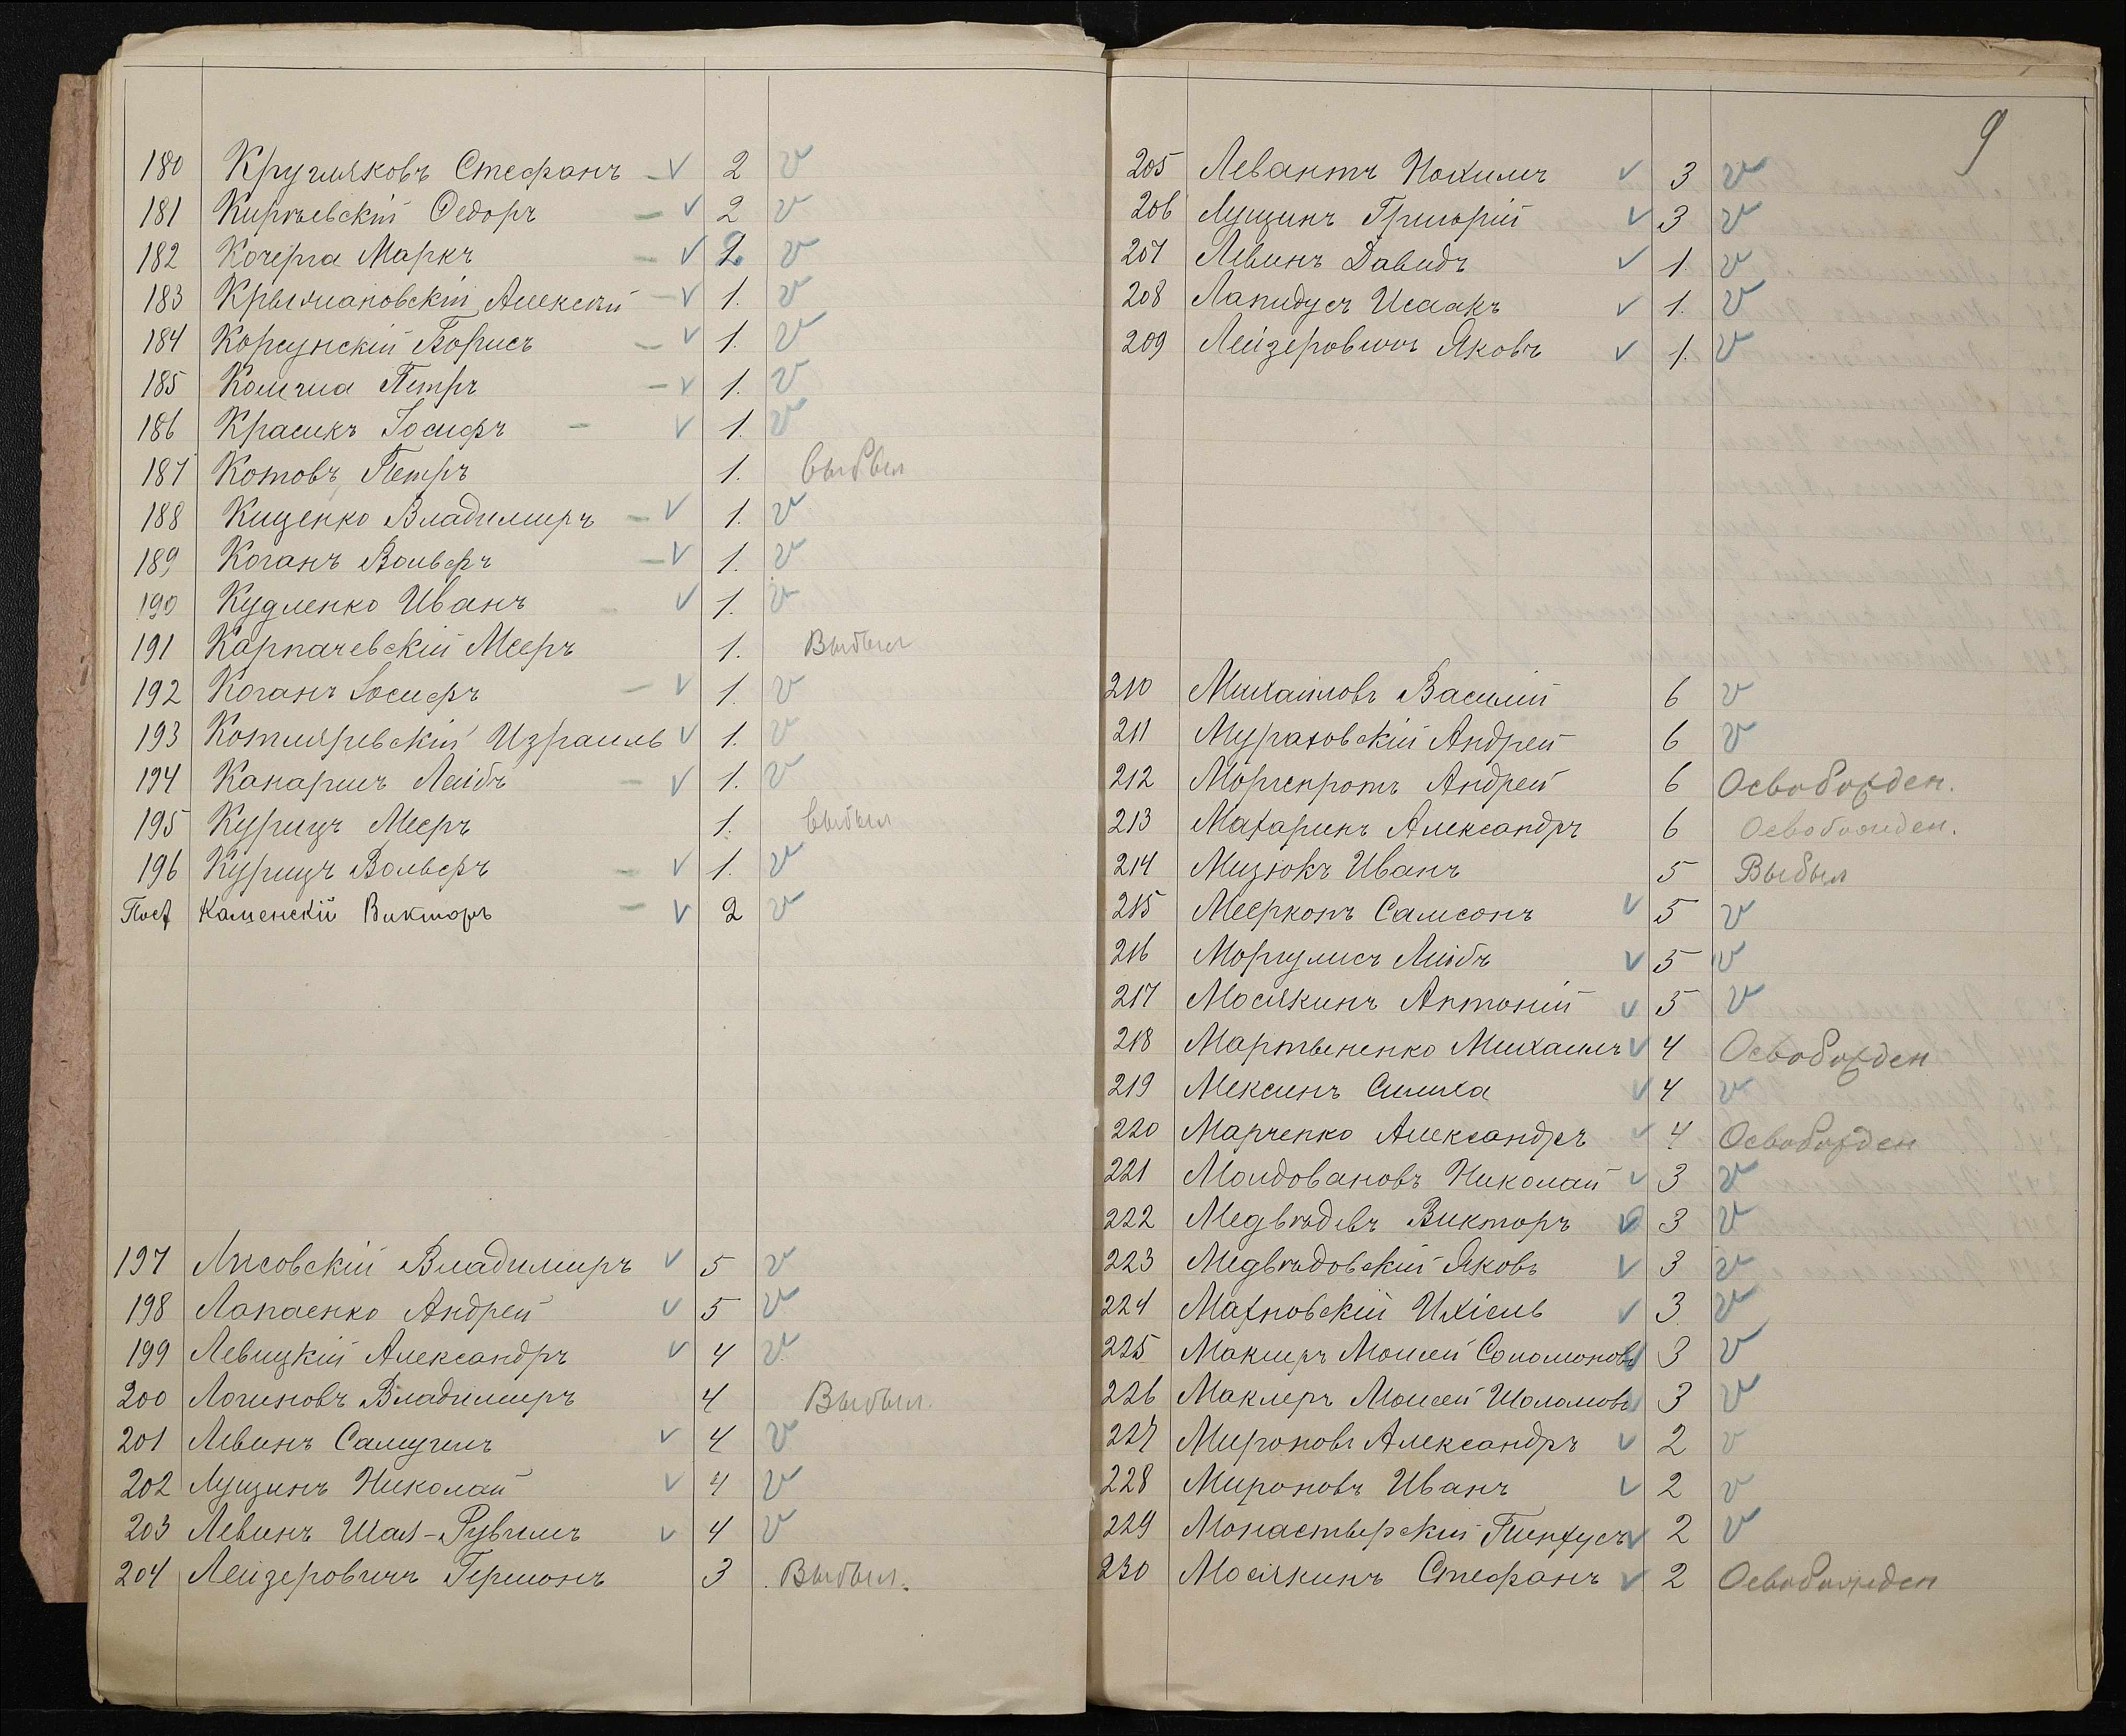 180 Кругляковъ Стефанъ – v 2 v
181 Киріевскій Ѳедоръ – v 2 v
182 Кочерга Маркъ – v 2 v
183 Крыжановскій Алексѣй – v 1. v
184 Корсунскій Борисъ – v 1. v
185 Петръ – v 1. v
186 Красикъ Іосифъ – v 1. v
187 Котовъ Петръ 1. выбыл
188 Кищенко Владимиръ – v 1. v
189 Коганъ Вольфъ – v 1. v
190 Кудленко Иванъ v 1. v
191 Карпачевскій Мееръ 1. Выбыл
192 Коганъ Іосифъ – v 1. v
193 Котляревскій Израиль v 1. v
194 Канаричъ Лейбъ – v 1. v
195 Курицъ Мееръ 1. выбыл
196 Курицъ Вольфъ – v 1. v
Каменскій Викторъ – v 2 v
197 Лисовскій Владимиръ v 5 v
198 Лапаенко Андрей v 5 v
199 Левицкій Александръ v 4 v
200 Логиновъ Владимиръ 4 Выбыл.
201 Левинъ Самуилъ v 4 v
202 Лущинъ Николай v 4 v
203 Левинъ Шая-Рувимъ v 4 v
204 Лейзеровичъ Гершонъ 3 Выбыл.
9
205 Левантъ Нохимъ v 3 v
206 Лущинъ Григорій v 3 v
207 Левинъ Давидъ v 1. v
208 Лапидусъ Исаакъ v 1. v
209 Лейзеровичъ Яковъ v 1. v
210 Михайловъ Василій 6 v
211 Мураховскій Андрей 6 v
212 Моргенротъ Андрей 6 Освобожден.
213 Махаринъ Александръ 6 Освобожден.
214 Мизюкъ Иванъ 5 Выбыл
215 Мееркопъ Самсонъ v 5 v
216 Моргулисъ Лейбъ v 5 v
217 Мосякинъ Антоній v 5 v
218 Мартыненко Михаилъ v 4 Освобожден
219 Мексинъ Симха v 4 v
220 Марченко Александръ v 4 Освобожден
221 Молдовановъ Николай v 3 v
222 Медвѣдевъ Викторъ v 3 v
223 Медвѣдовскій Яковъ v 3 v
224 Махновскій Ихіель v 3 v
225 Маклеръ Моисей Соломоновъ v 3 v
226 Маклеръ Моисей Шоломовъ v 3 v
227 Мироновъ Александръ v 2 v
228 Мироновъ Иванъ v 2 v
229 Монастырскій Пинхусъ v 2 v
230 Мосякинъ Стефанъ v 2 Освобожден